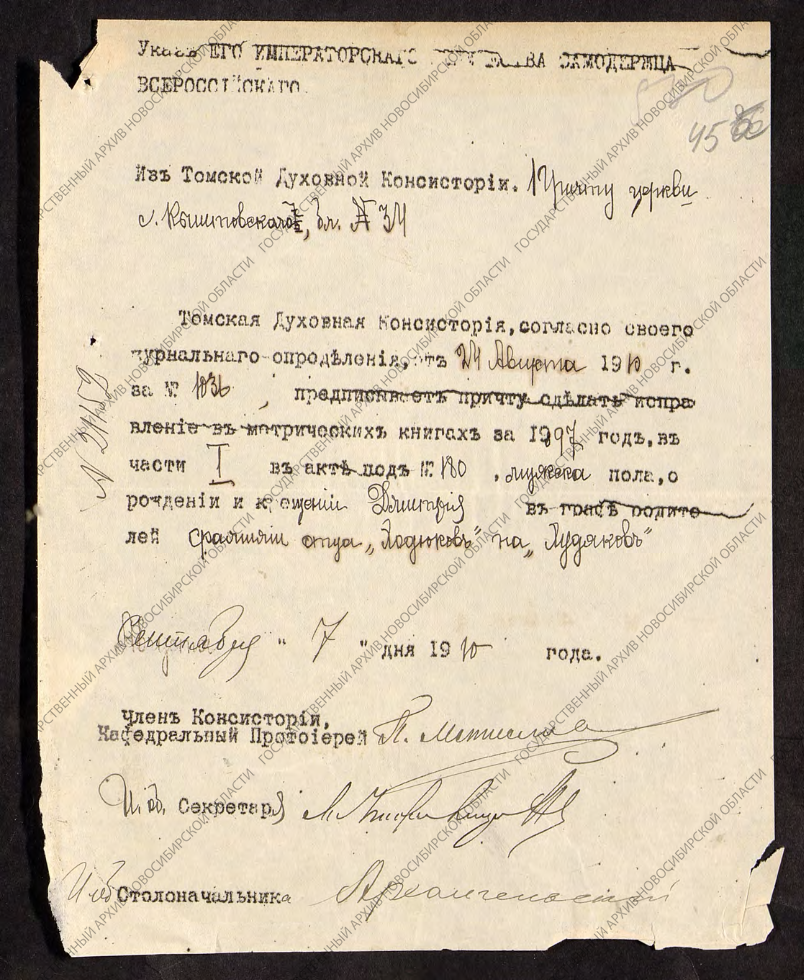 Указъ ЕГО ИМПЕРАТОРСКАГО ВЕЛИЧЕСТВА САМОДЕРЖЦА
ВСЕРОССІЙСКАГО.
45
Изъ Томской Духовной Консисторіи. Причту церкви
с. Кыштовскаго, бл. № 34
Томская Духовная Консисторія, согласно своего
журнальнаго опредѣленія, отъ 24 Августа 1910 г.
за № 1036, предписываетъ причту сдѣлать испра
вленіе въ метрическихъ книгахъ за 1897 годъ, въ
части I въ актѣ подъ № 180, мужска пола, о
рожденіи и крещеніи Дмитрія въ графѣ родите
лей фамиліи отца „Ходюковъ" на „Худяковъ"
Сентября " 7 " дня 1910 года.
Членъ Консисторіи,
Кафедральный Протоіерей П.
И. об. Секретаря
И об Столоначальника Архангельскій
ГОСУДАРСТВЕННЫЙ АРХИВ НОВОСИБИРСКОЙ ОБЛАСТИ